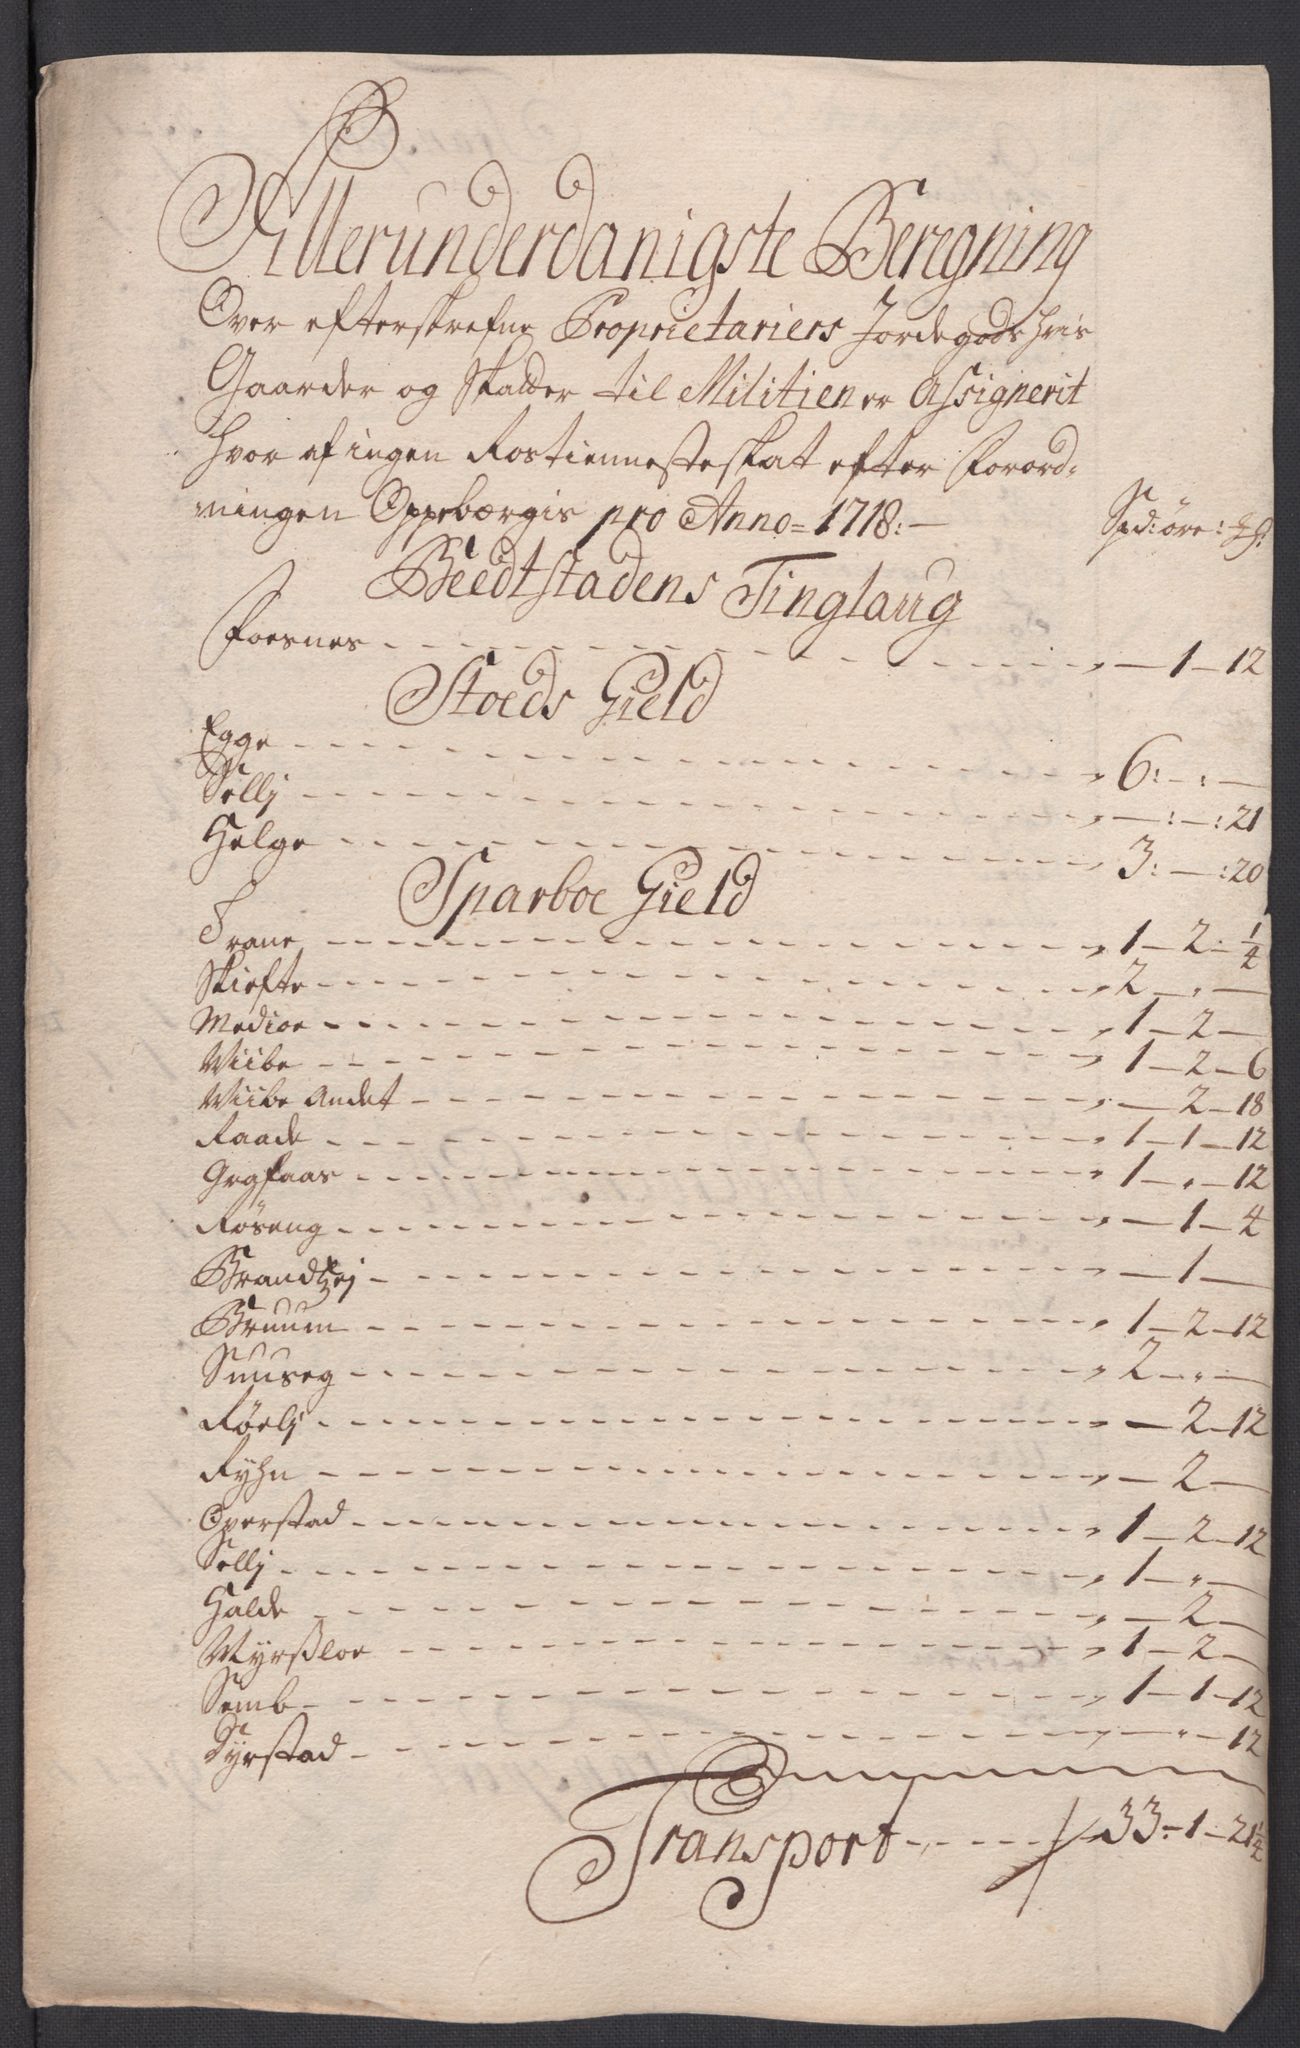 Allerunderdanigste Beregning
Over efterskrefne Proprietariers Jordegods hvis
Gaarder og Skatter til Militien er Assignerit
hvor af ingen Rostienneste skat efter Forord-
ningen Oppebærgis pro Anno = 1718: —
Spd: öre:
Beedtstadens Tinglaug
Foesnes - - - — 1 — 12
Stoeds Gield
Egge - - - 6: — : —
Sellj - - - — : — : 21
Helge - - - 3: — : 20
Sparboe Gield
Trane - - - 1 — 2 : 1/4
Skiefte - - - 2 — „ —
Medioe - - - 1 — 2 —
Wiibe - - - 1 — 2 — 6
Wiibe Andet - - - — 2 — 18
Raade - - - 1 — 1 — 12
Grøfaar - - - 1 — „ — 12
Røseng - - - — 1 — 4
Brandtzej - - - — 1 —
Bruum - - - 1 — 2 — 12
Suuseg - - - 2 — „ —
Røelj - - - — 2 — 12
Ryhn - - - — 2 —
Operstad - - - 1 — 2 — 12
Sellj - - - 1 — „ —
Halde - - - — 2 —
Myrßloe - - - 1 — 2 —
Semb - - - 1 — 1 — 12
Dyrstad - - - — „ — 12
Transport - - - 33 — 1 — 21 1/4